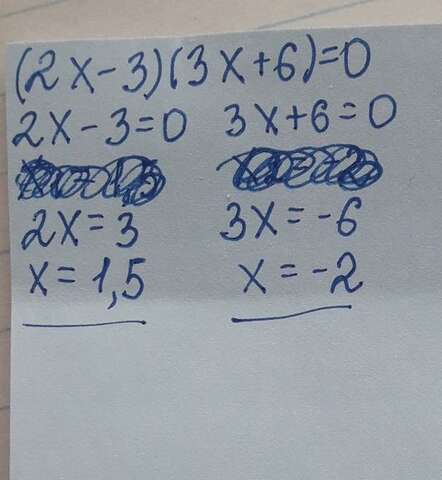 (2x-3)(3x+6)=0
2x-3=0 3x+6=0
2x=3 3x=-6
x=1,5 x=-2